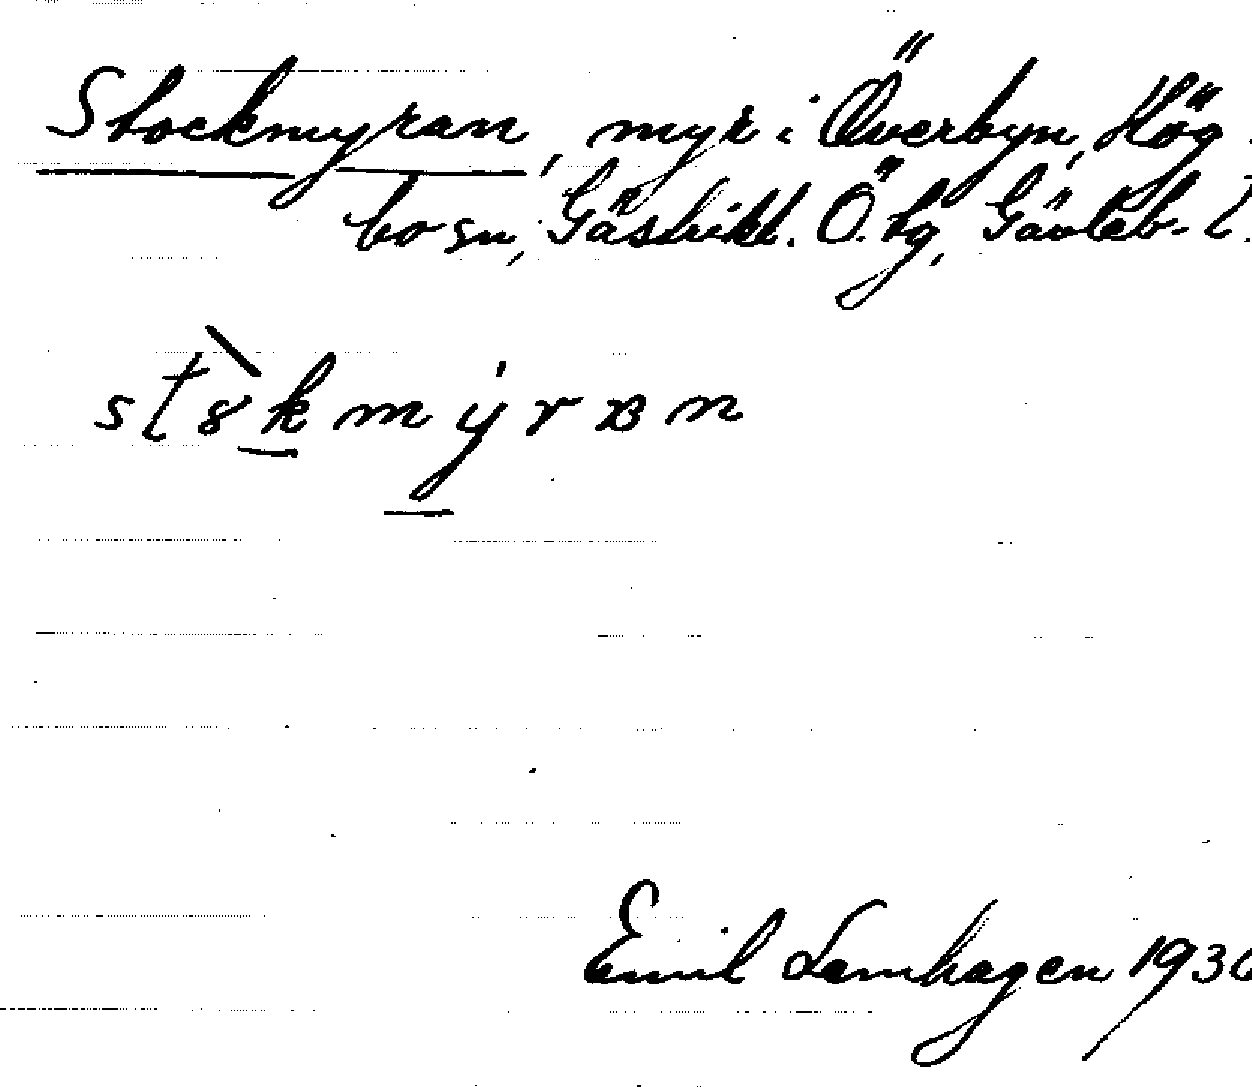 Stockmyran, myr i Överbyn, Hög-
bo sn, Gästrikl. Ö. tg, Gävleb. l.
stȣkmyrʙn
Emil Lamhagen